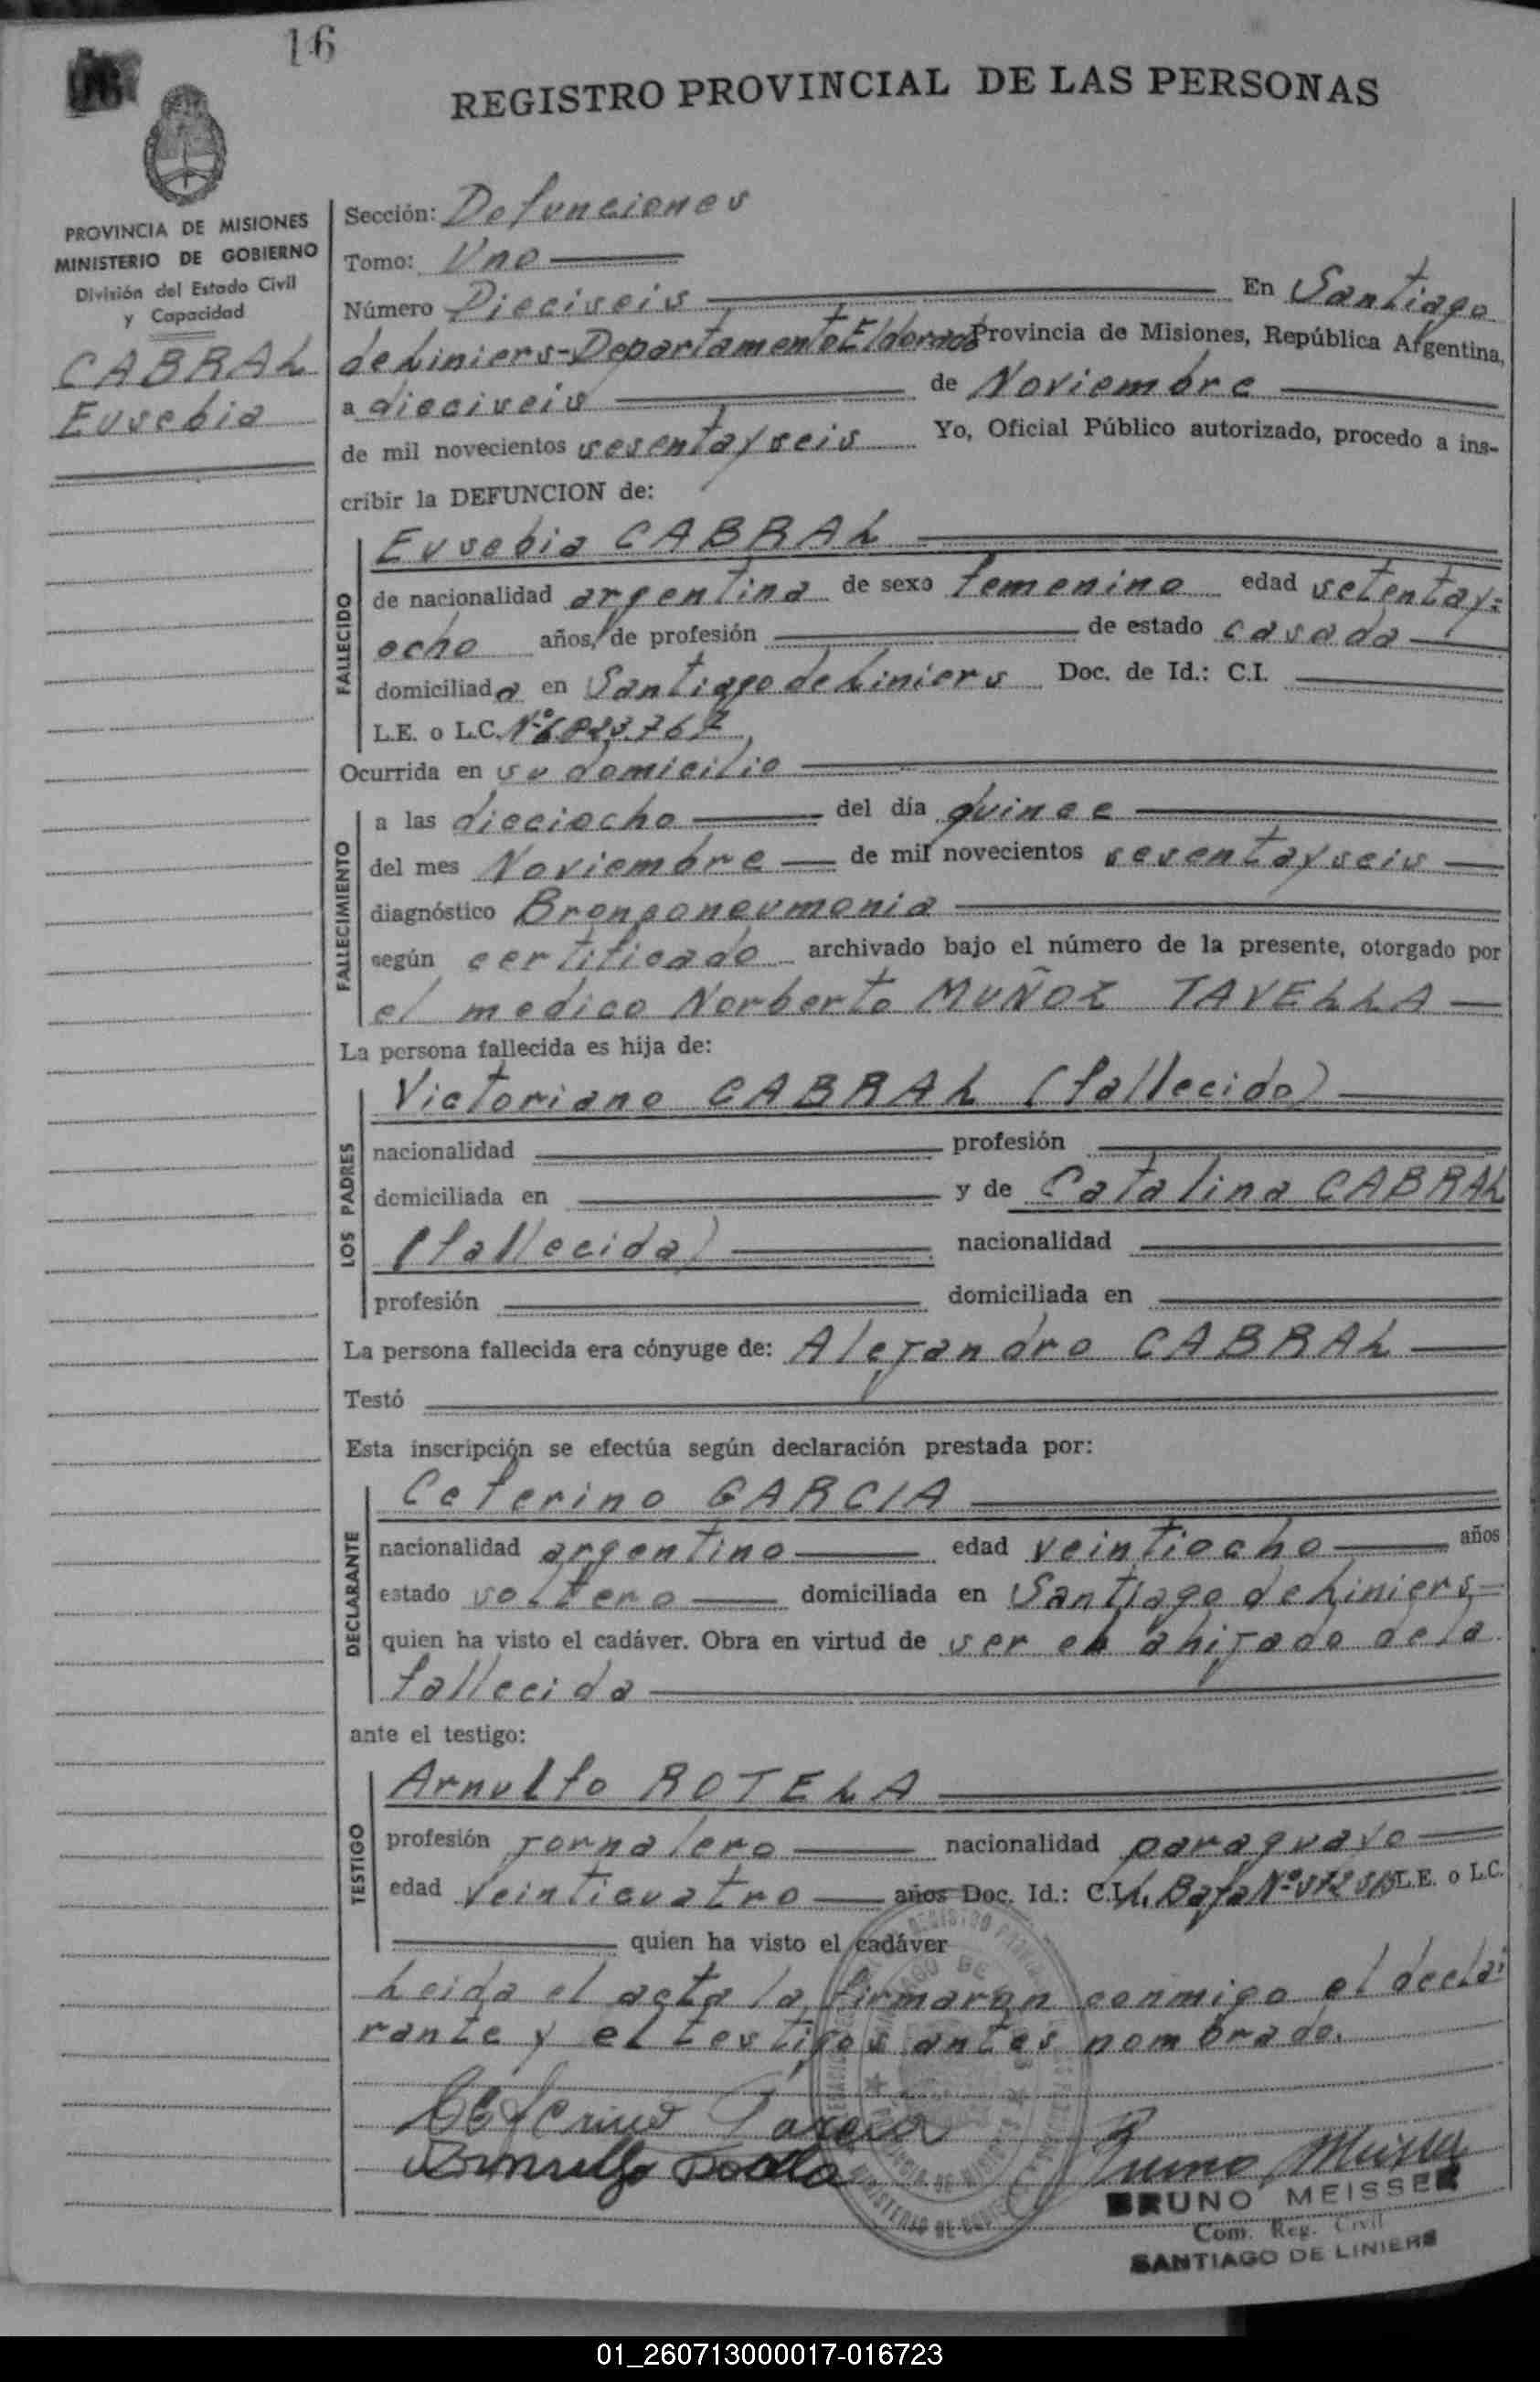 16
REGISTRO PROVINCIAL DE LAS PERSONAS
PROVINCIA DE MISIONES
MINISTERIO DE GOBIERNO
División del Estado Civil
y Capacidad
CABRAL
Eusebia
Sección: Defunciones
Tomo: Uno
Número Dieciseis En Santiago
de Liniers-Departamento Eldorado Provincia de Misiones, República Argentina,
a dieciseis de Noviembre
de mil novecientos sesentayseis Yo, Oficial Público autorizado, procedo a ins-
cribir la DEFUNCION de:
FALLECIDO
Eusebia CABRAL
de nacionalidad argentina de sexo femenino edad setentay=
ocho años, de profesión de estado casada
domiciliada en Santiago de Liniers Doc. de Id.: C.I.
L.E. o L.C. Nº 6.823.767
Ocurrida en su domicilio
FALLECIMIENTO
a las dieciocho del día quince
del mes Noviembre de mil novecientos sesentayseis
diagnóstico Bronconeumonia
según certificado archivado bajo el número de la presente, otorgado por
el medico Norberto MUÑOZ TAVELLA
La persona fallecida es hija de:
LOS PADRES
Victoriano CABRAL (fallecido)
nacionalidad profesión
domiciliada en y de Catalina CABRAL
(fallecida) nacionalidad
profesión domiciliada en
La persona fallecida era cónyuge de: Alejandro CABRAL
Testó
Esta inscripción se efectúa según declaración prestada por:
DECLARANTE
Ceferino GARCIA
nacionalidad argentino edad veintiocho años
estado soltero domiciliada en Santiago de Liniers=
quien ha visto el cadáver. Obra en virtud de ser el ahijado dela
fallecida
ante el testigo:
TESTIGO
Arnulfo ROTELA
profesión jornalero nacionalidad paraguayo
edad veinticuatro años Doc. Id.: C.I. Baja Nº L.E. o L.C.
quien ha visto el cadáver
Leida el acta la firmaron conmigo el decla=
rante y el testigos antes nombrado.
Ceferino Garcia
Arnulfo Rotela
Bruno Meisser
BRUNO MEISSER
Com. Reg. Civil
SANTIAGO DE LINIERS
01_260713000017-016723